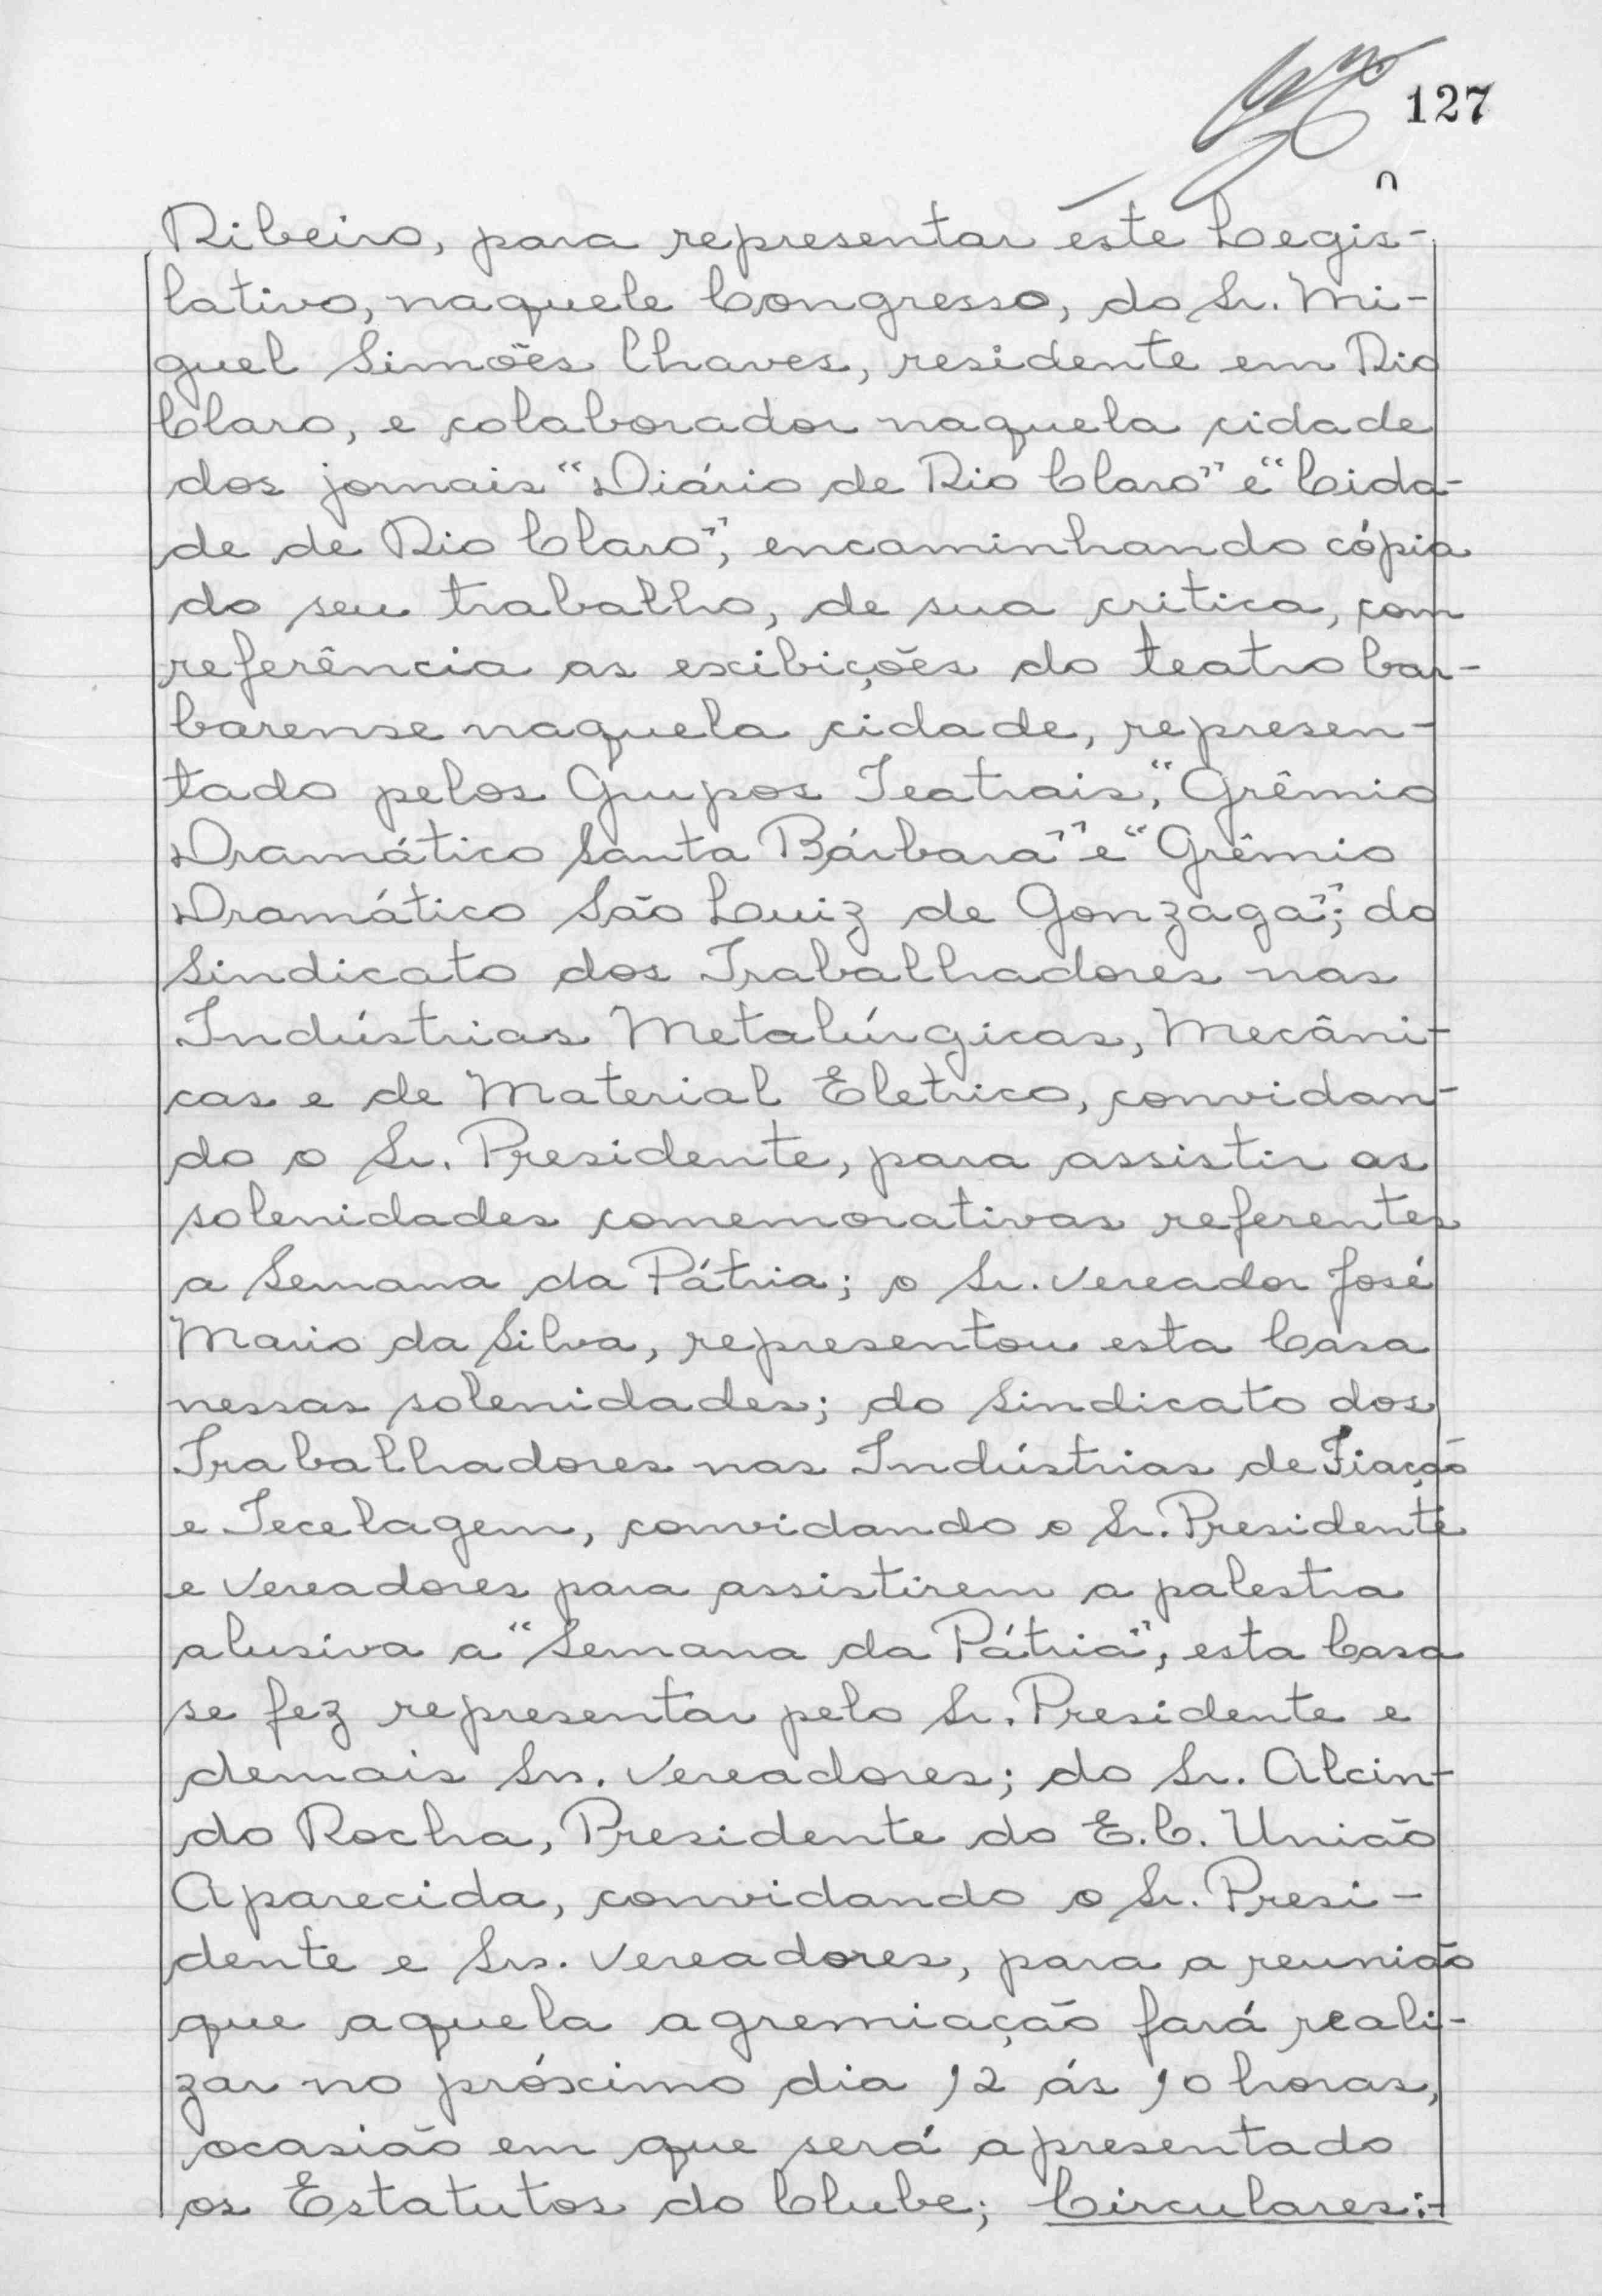 127
Ribeiro, para representar este Legis-
lativo, naquele Congresso, do Sr. Mi-
guel Simões Chaves, residente em Rio
Claro, e colaborador naquela cidade
dos jornais "Diário de Rio Claro" e "Cida-
de de Rio Claro", encaminhando cópia
do seu trabalho, de sua critica, com
referência as exibições do teatro bar-
barense naquela cidade, represen-
tado pelos Grupos Teatrais, "Grêmio
Dramático Santa Bárbara" e "Grêmio
Dramático São Luiz de Gonzaga"; do
Sindicato dos Trabalhadores nas
Indústrias Metalúrgicas, Mecâni-
cas e de Material Eletrico, convidan-
do o Sr. Presidente, para assistir as
solenidades comemorativas referentes
a Semana da Pátria; o Sr. Vereador José
Mario da Silva, representou esta Casa
nessas solenidades; do Sindicato dos
Trabalhadores nas Indústrias de Fiação
e Tecelagem, convidando o Sr. Presidente
e Vereadores para assistirem a palestra
alusiva a "Semana da Pátria", esta Casa
se fez representar pelo Sr. Presidente e
demais Srs. Vereadores; do Sr. Alcin-
do Rocha, Presidente do E.C. União
Aparecida, convidando o Sr. Presi-
dente e Srs. Vereadores, para a reunião
que aquela agremiação fará reali-
zar no próximo dia 12 ás 10 horas,
ocasião em que será apresentado
os Estatutos do Clube; Circulares:-